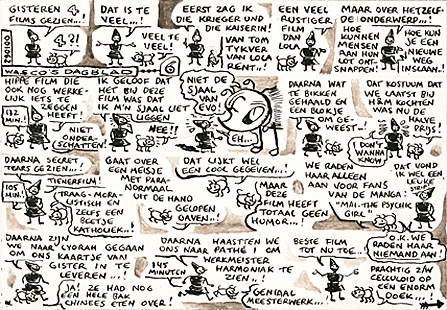 GISTEREN 4
FILMS GEZIEN...
4?!
DAT IS TE
VEEL...!
VEEL TE
VEEL!
EERST ZAG IK
DIE KRIEGER UND
DIE KAISERIN!
VAN TOM
TYKVER
VAN LOLA
RENT..!
EEN VEEL
RUSTIGER
FILM
DAN
LOLA
MAAR OVER HETZELFDE
ONDERWERP...!
HOE
KUNNEN
MENSEN
AAN HUN
LOT ONT-
SNAPPEN!
HOE KUN
JE EEN
NIEUWE
WEG
INSLAAN!
WASCO'S DAGBLAD
6
HIPPE FILM DIE
OOK NOG WERKE-
LIJK IETS TE
ZEGGEN
HEEFT!
132
MIN.!
NIET
ONDER-
SCHATTEN!
IK GELOOF DAT
HET BIJ DEZE
FILM WAS DAT
IK M'N SJAAL LIET
LIGGEN
NEE!!
NIET DE
SJAAL
VAN
EVO!
EH...
DAARNA WAT
TE BIKKEN
GEHAALD EN
EEN BLOKJE
OM GE-
WEEST..!
DAT KOSTUUM DAT
WE LAATST BIJ
H&M KOCHTEN
WAS NU
DE
HALVE
PRIJS!
I DON'T
WANNA
KNOW
DAARNA SECRET
TEARS GEZIEN...!
TIENERFILM!
105
MIN.
TRAAG-MORA-
LISTISCH EN
ZELFS EEN
BEETJE
KATHOLIEK..!
GAAT OVER
EEN MEISJE
MET PARA-
NORMAAL
UIT DE HAND
GELOPEN
GAVEN..!
DAT LIJKT WEL
EEN COOL GEGEVEN...!
MAAR
DEZE
FILM HEEFT
TOTAAL GEEN
HUMOR...
WE RADEN
HAAR ALLEEN
AAN VOOR FANS
VAN DE MANGA:
"MAI-THE PSYCHIC
GIRL"
DAT VOND
IK WEL
EEN
LEUKE
STRIP
O.K. WE
RADEN HAAR
NIEMAND AAN!
DAARNA ZIJN
WE NAAR LYORAH GEGAAN
OM ONS KAARTJE VAN
GISTER IN TE
LEVEREN...!
JA! ZE HAD NOG
EEN HELE BAK
CHINEES ETEN OVER!
DAARNA HAASTTEN WE
ONS NAAR PATHÉ 1 OM
WERKMEISTER
HARMONIAK TE
ZIEN..!
145
MINUTEN
GENIAAL
MEESTERWERK...
BESTE FILM
TOT NU TOE..
PRACHTIG Z/W
CELLULOID OP
EEN ENORM
DOEK...!